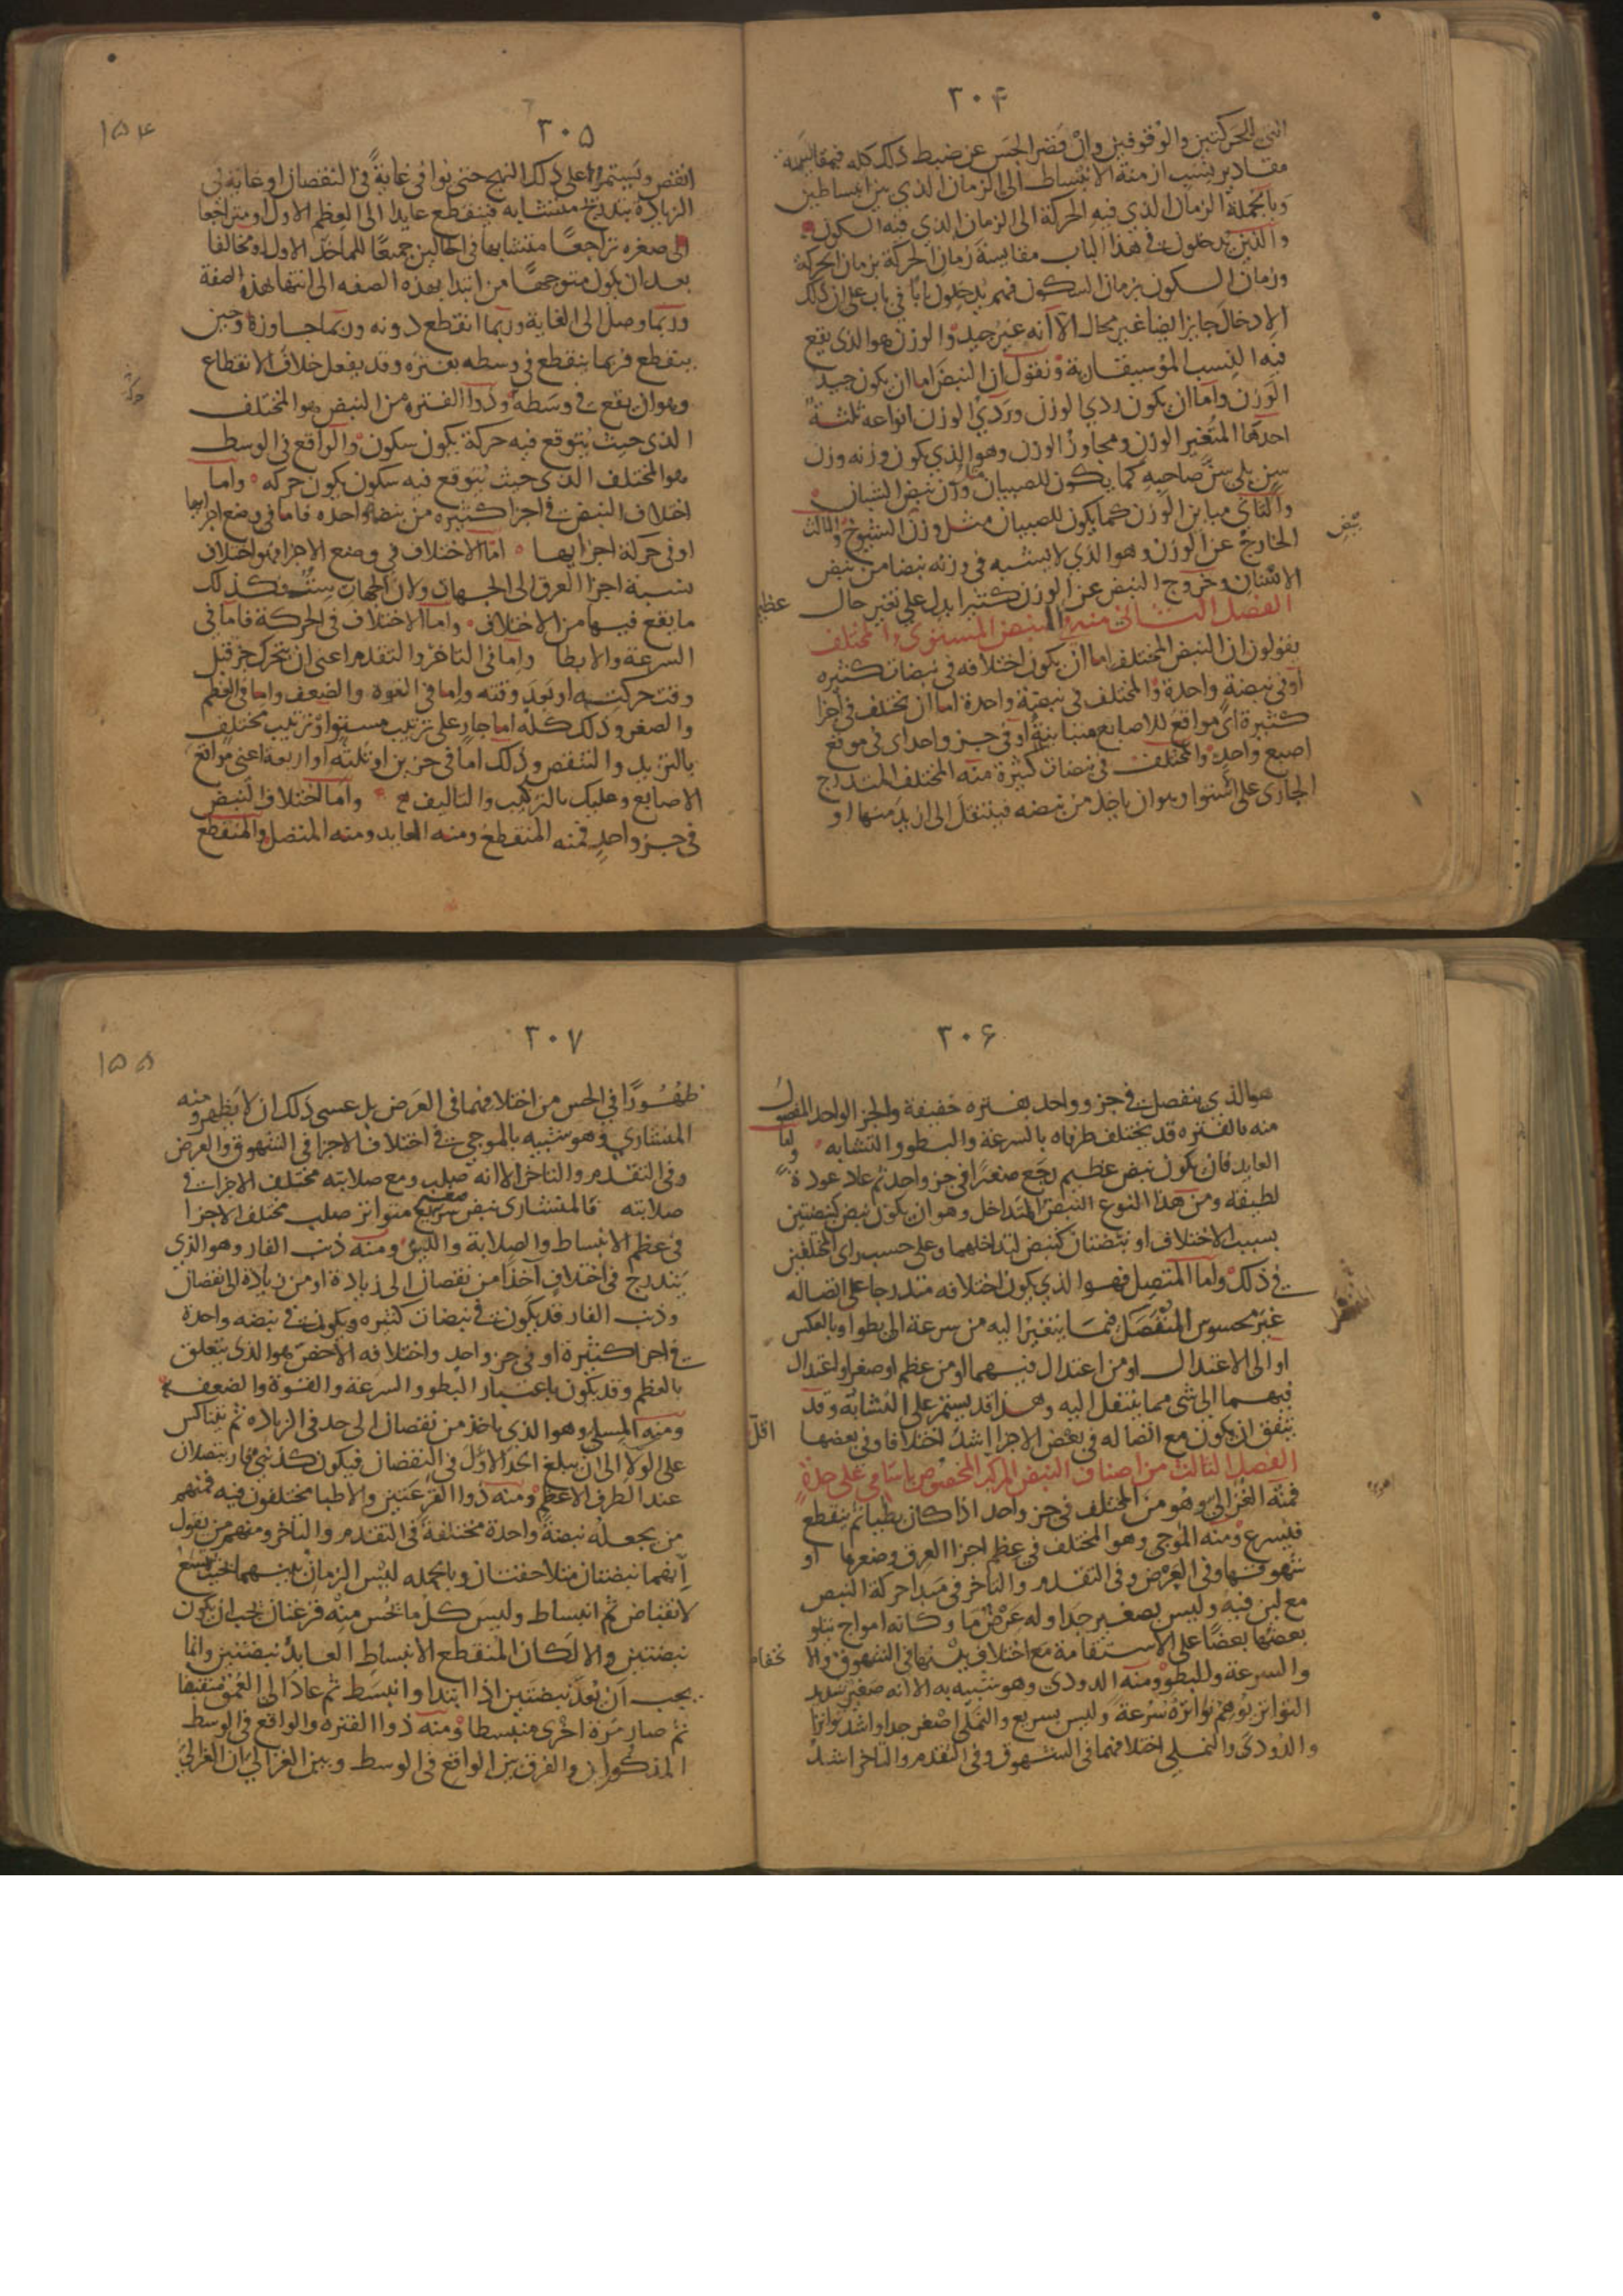 ٣٠۴
التى للحركتين والوقوفين وان قصر الحس عن ضبط ذلك كله فبمقايسة
مقادير بنسب ازمنة الانبساط الى الزمان الذي بين انبساطين
وبالجملة الزمان الذي فيه الحركة الى الزمان الذي فيه السكون
والذين يدخلون في هذا الباب مقايسة زمان الحركة بزمان الحركة
وزمان السكون بزمان السكون فهم يدخلون بابا في باب على ان ذلك
الادخال جايز ايضا غير محال الا انه غير جيد والوزن هو الذي يقع
فيه النسب الموسيقارية ونقول ان النبض اما ان يكون جيد
الوزن واما ان يكون ردي الوزن وردي الوزن انواعه ثلثة
احدها المتغير الوزن ومجاوز الوزن وهو الذي يكون وزنه وزن
سن يلي سن صاحبه كما يكون للصبيان مثل وزن نبض الشبان
والثاني مباين الوزن كما يكون للصبيان مثل وزن الشيوخ والثالث
الخارج عن الوزن وهو الذي لا يشبه في وزنه نبضا من نبض
نبض
الاسنان وخروج النبض عن الوزن كثيرا يدل على تغير حال
عظيم
الفصل الثانى منه في النبض المستوى والمختلف
يقولون ان النبض المختلف اما ان يكون اختلافه في نبضات كثيره
او في نبضة واحدة والمختلف في نبضة واحدة اما ان يختلف في اجزا
كثيرة اى مواقع للاصابع متباينة او في جزو واحد اى في موقع
اصبع واحد والمختلف في نبضات كثيرة منه المختلف المتدرج
الجارى على استوا وهو ان ياخذ من نبضه فينتقل الى ازيد منها او
٣٠۵
١۵۴
انقص ويستمر على ذلك النهج حتى يوافى غاية في النقصان او غاية في
الزيادة بتدرج متشابه فينقطع عايدا الى العظم الاول او متراجعا
الى صغره تراجعا متشابها في الحالين جميعا للماخذ الاول او مخالفا
بعد ان يكون متوجها من ابتدا بهذه الصفه الى انتها بهذه الصفة
وربما وصل الى الغاية وربما انقطع دونه وربما جاوزه وحين
ينقطع فربما ينقطع في وسطه بفتره وقد يفعل خلاف الانقطاع
وهو ان يقع في وسطه وذو الفتره من النبض هو المختلف
الذى حيث يتوقع فيه حركة يكون سكون والواقع في الوسط
هو المختلف الذى حيث يتوقع فيه سكون يكون حركه واما
اختلاف النبض في اجزا كثيره من نبضة واحده فاما في وضع اجزايها
او في حركة اجزايها اما الاختلاف في وضع الاجزا فهو اختلاف
نسبة اجزا العرق الى الجهات ولان الجهات ست فكذلك
ما يقع فيها من الاختلاف واما الاختلاف في الحركة فاما في
السرعة والابطا واما في التاخر والتقدم اعنى ان يتحرك جز قبل
وقت حركته او بعد وقته واما في القوة والضعف واما في العظم
والصغر وذلك كله اما جار على ترتيب مستو او ترتيب مختلف
بالتزيد والتنقص وذلك اما في جزين او ثلثه او اربعة اعنى مواقع
الاصابع وعليك بالتركيب والتاليف واما اختلاف النبض
في جزو واحد فمنه المنقطع ومنه العايد ومنه المتصل والمنقطع
٣٠۶
هو الذي ينفصل في جزو واحد بفتره خفيفة والجز الواحد المفصول
منه بالفتره قد يختلف طرفاه بالسرعة والبطو والتشابه واما
العايد فان يكون نبض عظيم رجع صغيرا في جزو واحد ثم عاد عودة
لطيفه ومن هذا النوع النبض المتداخل وهو ان يكون نبض كنبضتين
بسبب الاختلاف او نبضتان كنبض لتداخلهما وعلى حسب راى المختلفين
في ذلك واما المتصل فهو الذي يكون اختلافه متدرجا على اتصاله
غير محسوس الفصل فيما يتغير اليه من سرعة الى بطو او بالعكس
او الى الاعتدال او من اعتدال فيهما او من عظم او صغر او اعتدال
فيهما الى شى مما ينتقل اليه وهذا قد يستمر على التشابه وقد
يتفق ان يكون مع اتصاله في بعض الاجزا اشد اختلافا وفي بعضها
اقل
الفصل الثالث من اصناف النبض المركب المخصوص باسامي على حدة
فمنه الغزالى وهو من المختلف في جز واحد اذا كان بطيا ثم ينقطع
فيسرع ومنه الموجى وهو المختلف في عظم اجزا العرق وصغرها او
شهوقها وفي العرض وفي التقدم والتاخر في مبدا حركة النبض
مع لين فيه وليس بصغير جدا وله عرض ما وكانه امواج يتلو
بعضها بعضا على الاستقامة مع اختلاف بينها في الشهوق والا
نخفاض
والسرعة والبطو ومنه الدودى وهو شبيه به الا انه صغير شديد
التواتر يوهم تواتره سرعة وليس بسريع والنملى اصغر جدا واشد تواترا
والدودى والنملى اختلافهما في الشهوق وفي التقدم والتاخر اشد
٣٠٧
١۵۵
ظهورا في الحس من اختلافهما في العرض بل عسى ذلك ان لا يظهر ومنه
المنشاري وهو شبيه بالموجى في اختلاف الاجزا في الشهوق والعرض
وفي التقدم والتاخر الا انه صلب ومع صلابته مختلف الاجزا في
صلابته فالمنشارى نبض سريع متواتر صلب مختلف الاجزا
في عظم الانبساط والصلابة واللين ومنه ذنب الفار وهو الذي
يتدرج في اختلاف اخذا من نقصان الى زيادة او من زيادة الى نقصان
وذنب الفار قد يكون في نبضات كثيره ويكون في نبضه واحدة
في اجزا كثيرة او في جز واحد واختلافه الاخص هو الذى يتعلق
بالعظم وقد يكون باعتبار البطو والسرعة والقوة والضعف
ومنه المسلى وهو الذي ياخذ من نقصان الى حد في الزياده ثم يتناكس
على الولا الى ان يبلغ الحد الاول في النقصان فيكون كذنبي فار يتصلان
عند الطرف الاعظم ومنه ذو القرعتين والاطبا مختلفون فيه فمنهم
من يجعله نبضة واحدة مختلفة في التقدم والتاخر ومنهم من يقول
انهما نبضتان متلاحقتان وبالجمله ليس الزمان بينهما بحيث يتسع
لانقباض ثم انبساط وليس كل ما يحس منه قرعتان يجب ان يكون
نبضتين والا لكان المنقطع الانبساط العايد نبضتين وانما
يجب ان يعد نبضتين اذا ابتدا وانبسط ثم عاد الى العمق منقبضا
ثم صار مرة اخرى منبسطا ومنه ذو الفتره والواقع في الوسط
المذكوران والفرق بين الواقع في الوسط وبين الغزالي ان الغزالي